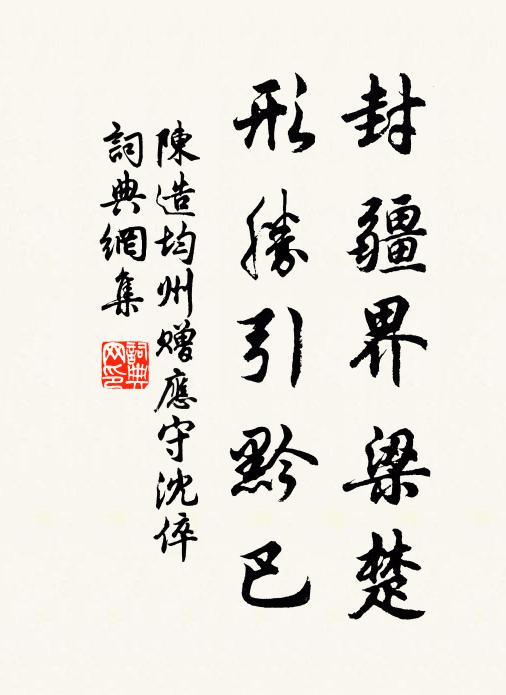 封疆界梁楚
形勝引黔巴
陳造均州贈應守沈倅
詞典網集
詞典网印